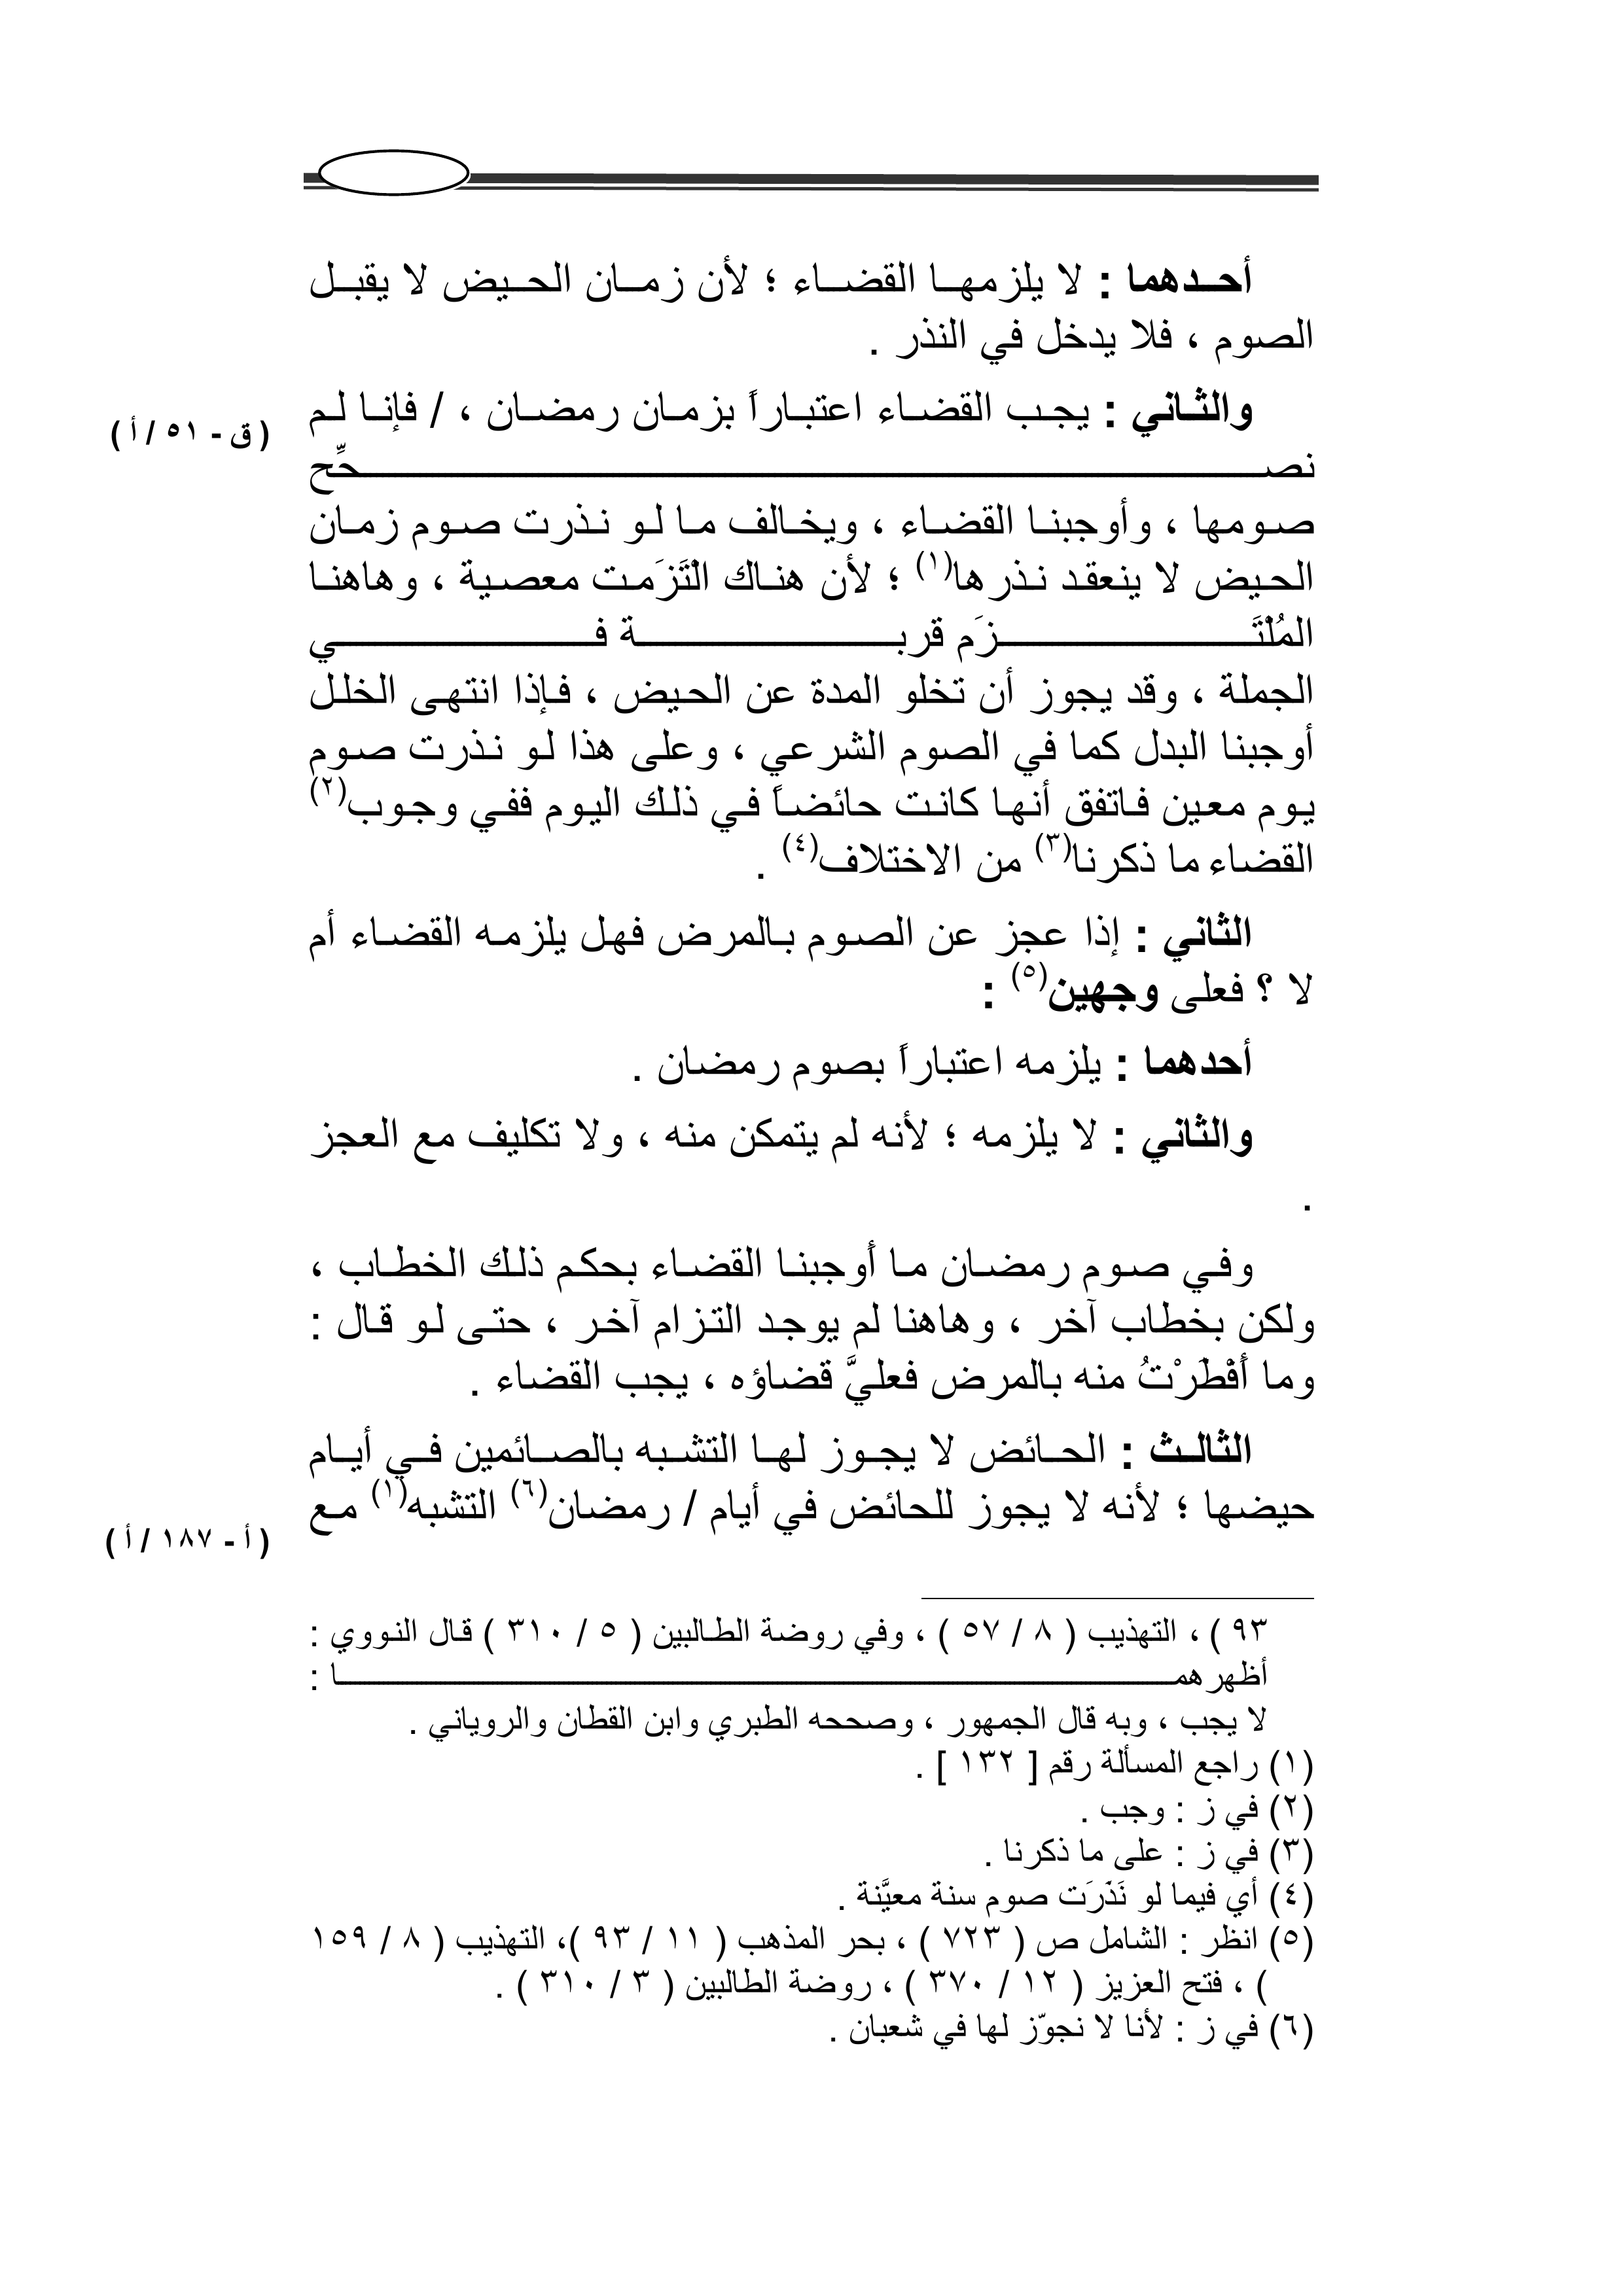 أحدهما : لا يلزمها القضاء ؛ لأن زمان الحيض لا يقبل
الصوم ، فلا يدخل في النذر .
والثاني : يجب القضاء اعتباراً بزمان رمضان ، / فإنا لم
( ق - ٥١ / أ )
نصحِّح
صومها ، وأوجبنا القضاء ، ويخالف ما لو نذرت صوم زمان
الحيض لا ينعقد نذرها(١) ؛ لأن هناك الْتَزَمت معصية ، وهاهنا
المُلْتَزَم قربة في
الجملة ، وقد يجوز أن تخلو المدة عن الحيض ، فإذا انتهى الخلل
أوجبنا البدل كما في الصوم الشرعي ، وعلى هذا لو نذرت صوم
يوم معين فاتفق أنها كانت حائضاً في ذلك اليوم ففي وجوب(٢)
القضاء ما ذكرنا(٣) من الاختلاف(٤) .
الثاني : إذا عجز عن الصوم بالمرض فهل يلزمه القضاء أم
لا ؟ فعلى وجهين(٥) :
أحدهما : يلزمه اعتباراً بصوم رمضان .
والثاني : لا يلزمه ؛ لأنه لم يتمكن منه ، ولا تكليف مع العجز
.
وفي صوم رمضان ما أَوجبنا القضاء بحكم ذلك الخطاب ،
ولكن بخطاب آخر ، وهاهنا لم يوجد التزام آخر ، حتى لو قال :
وما أَفْطَرْتُ منه بالمرض فعليَّ قضاؤه ، يجب القضاء .
الثالث : الحائض لا يجوز لها التشبه بالصائمين في أيام
حيضها ؛ لأنه لا يجوز للحائض في أيام / رمضان(٦) التشبه(١) مع
( أ - ١٨٧ / أ )
٩٣ ) ، التهذيب ( ٨ / ٥٧ ) ، وفي روضة الطالبين ( ٥ / ٣١٠ ) قال النووي :
أظهرهما :
لا يجب ، وبه قال الجمهور ، وصححه الطبري وابن القطان والروياني .
(١) راجع المسألة رقم [ ١٣٢ ] .
(٢) في ز : وجب .
(٣) في ز : على ما ذكرنا .
(٤) أي فيما لو نَذَرَت صوم سنة معيَّنة .
(٥) انظر : الشامل ص ( ٧٢٣ ) ، بحر المذهب ( ١١ / ٩٣ )، التهذيب ( ٨ / ١٥٩
) ، فتح العزيز ( ١٢ / ٣٧٠ ) ، روضة الطالبين ( ٣ / ٣١٠ ) .
(٦) في ز : لأنا لا نجوّز لها في شعبان .